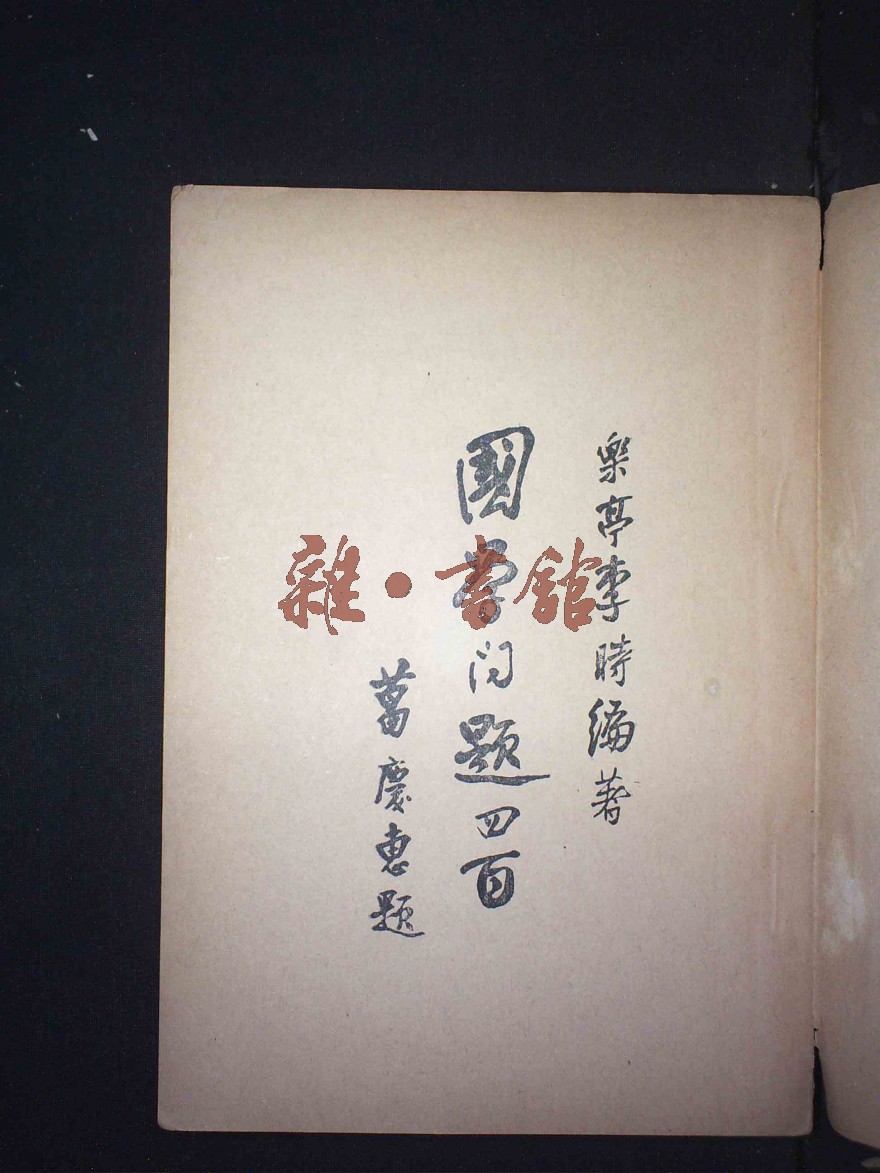 樂亭李時編著
國學问題四百
葛慶惠題
雜·書館